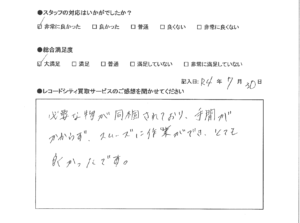 ●スタッフの対応はいかがでしたか？
☑非常に良かった □良かった □普通 □良くない □非常に良くない
●総合満足度
☑大満足 □満足 □普通 □満足していない □非常に満足していない
記入日:R4年 7月 30日
●レコードシティ買取サービスのご感想を聞かせてください
必要な物が同梱されており、手間が
かからず、スムーズに作業ができ、とても
良かったです。